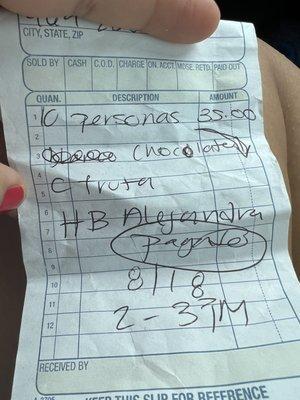 CITY, STATE, ZIP
SOLD BY CASH C.O.D. CHARGE ON. ACCT. MDSE. RETD. PAID OUT
QUAN. DESCRIPTION AMOUNT
1 10 personas 35.00
2
3 chocolate
4
5 C fruta
6
7 HB Alejandra
8 pagado
9
10 8/18
11
12 2-37M
RECEIVED BY
KEEP THIS SLIP FOR REFERENCE